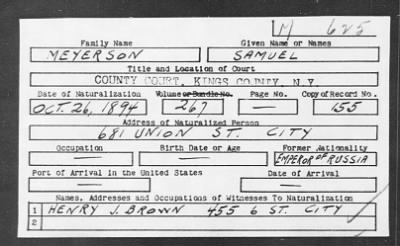 M 625
Family Name Given Name or Names
MEYERSON SAMUEL
Title and Location of Court
COUNTY COURT, KINGS COUNTY, N.Y.
Date of Naturalization Volume or Bundle No. Page No. Copy of Record No.
OCT. 26, 1894 267 — 155
Address of Naturalized Person
681 UNION ST. CITY
Occupation Birth Date or Age Former Nationality
— — EMPEROR OF RUSSIA
Port of Arrival in the United States Date of Arrival
— —
Names, Addresses and Occupations of Witnesses To Naturalization
1 HENRY J. BROWN 455 6 ST. CITY
2